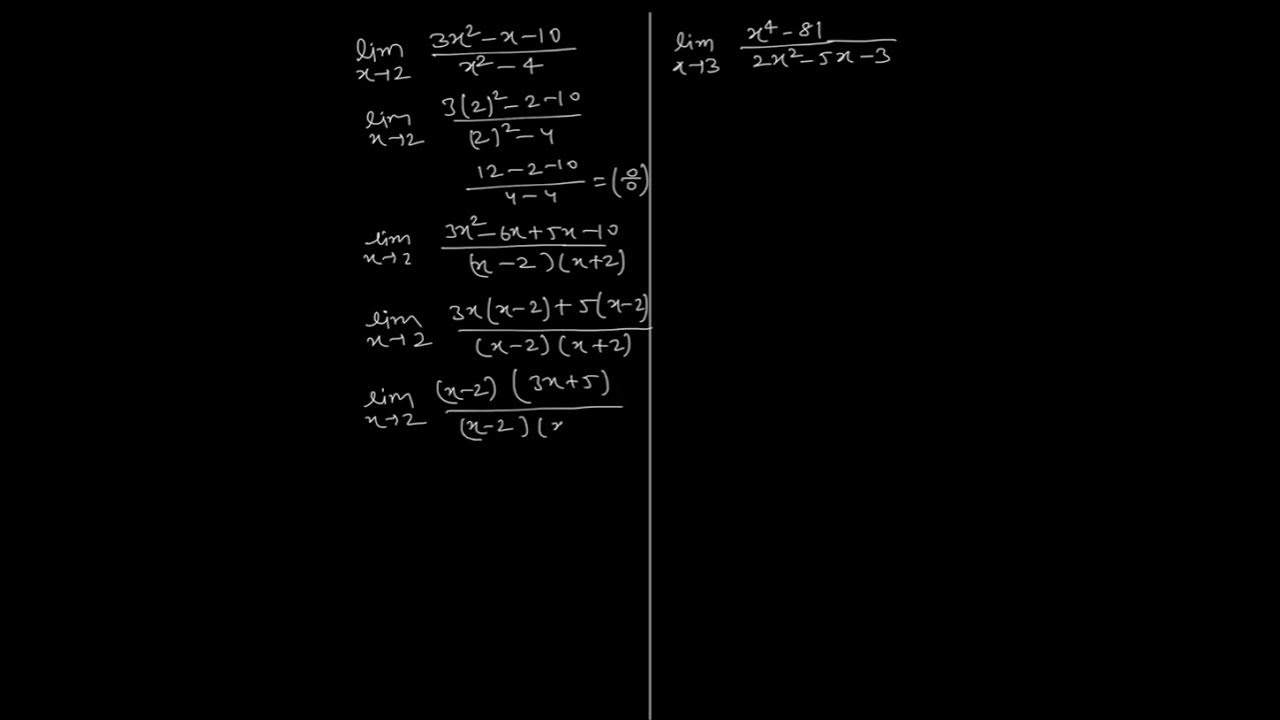 lim x→2 (3x² - x - 10)/(x² - 4)
lim x→2 (3(2)² - 2 - 10)/((2)² - 4)
(12 - 2 - 10)/(4 - 4) = (0/0)
lim x→2 (3x² - 6x + 5x - 10)/((x - 2)(x + 2))
lim x→2 (3x(x - 2) + 5(x - 2))/((x - 2)(x + 2))
lim x→2 ((x - 2)(3x + 5))/((x - 2)(x
lim x→3 (x⁴ - 81)/(2x² - 5x - 3)